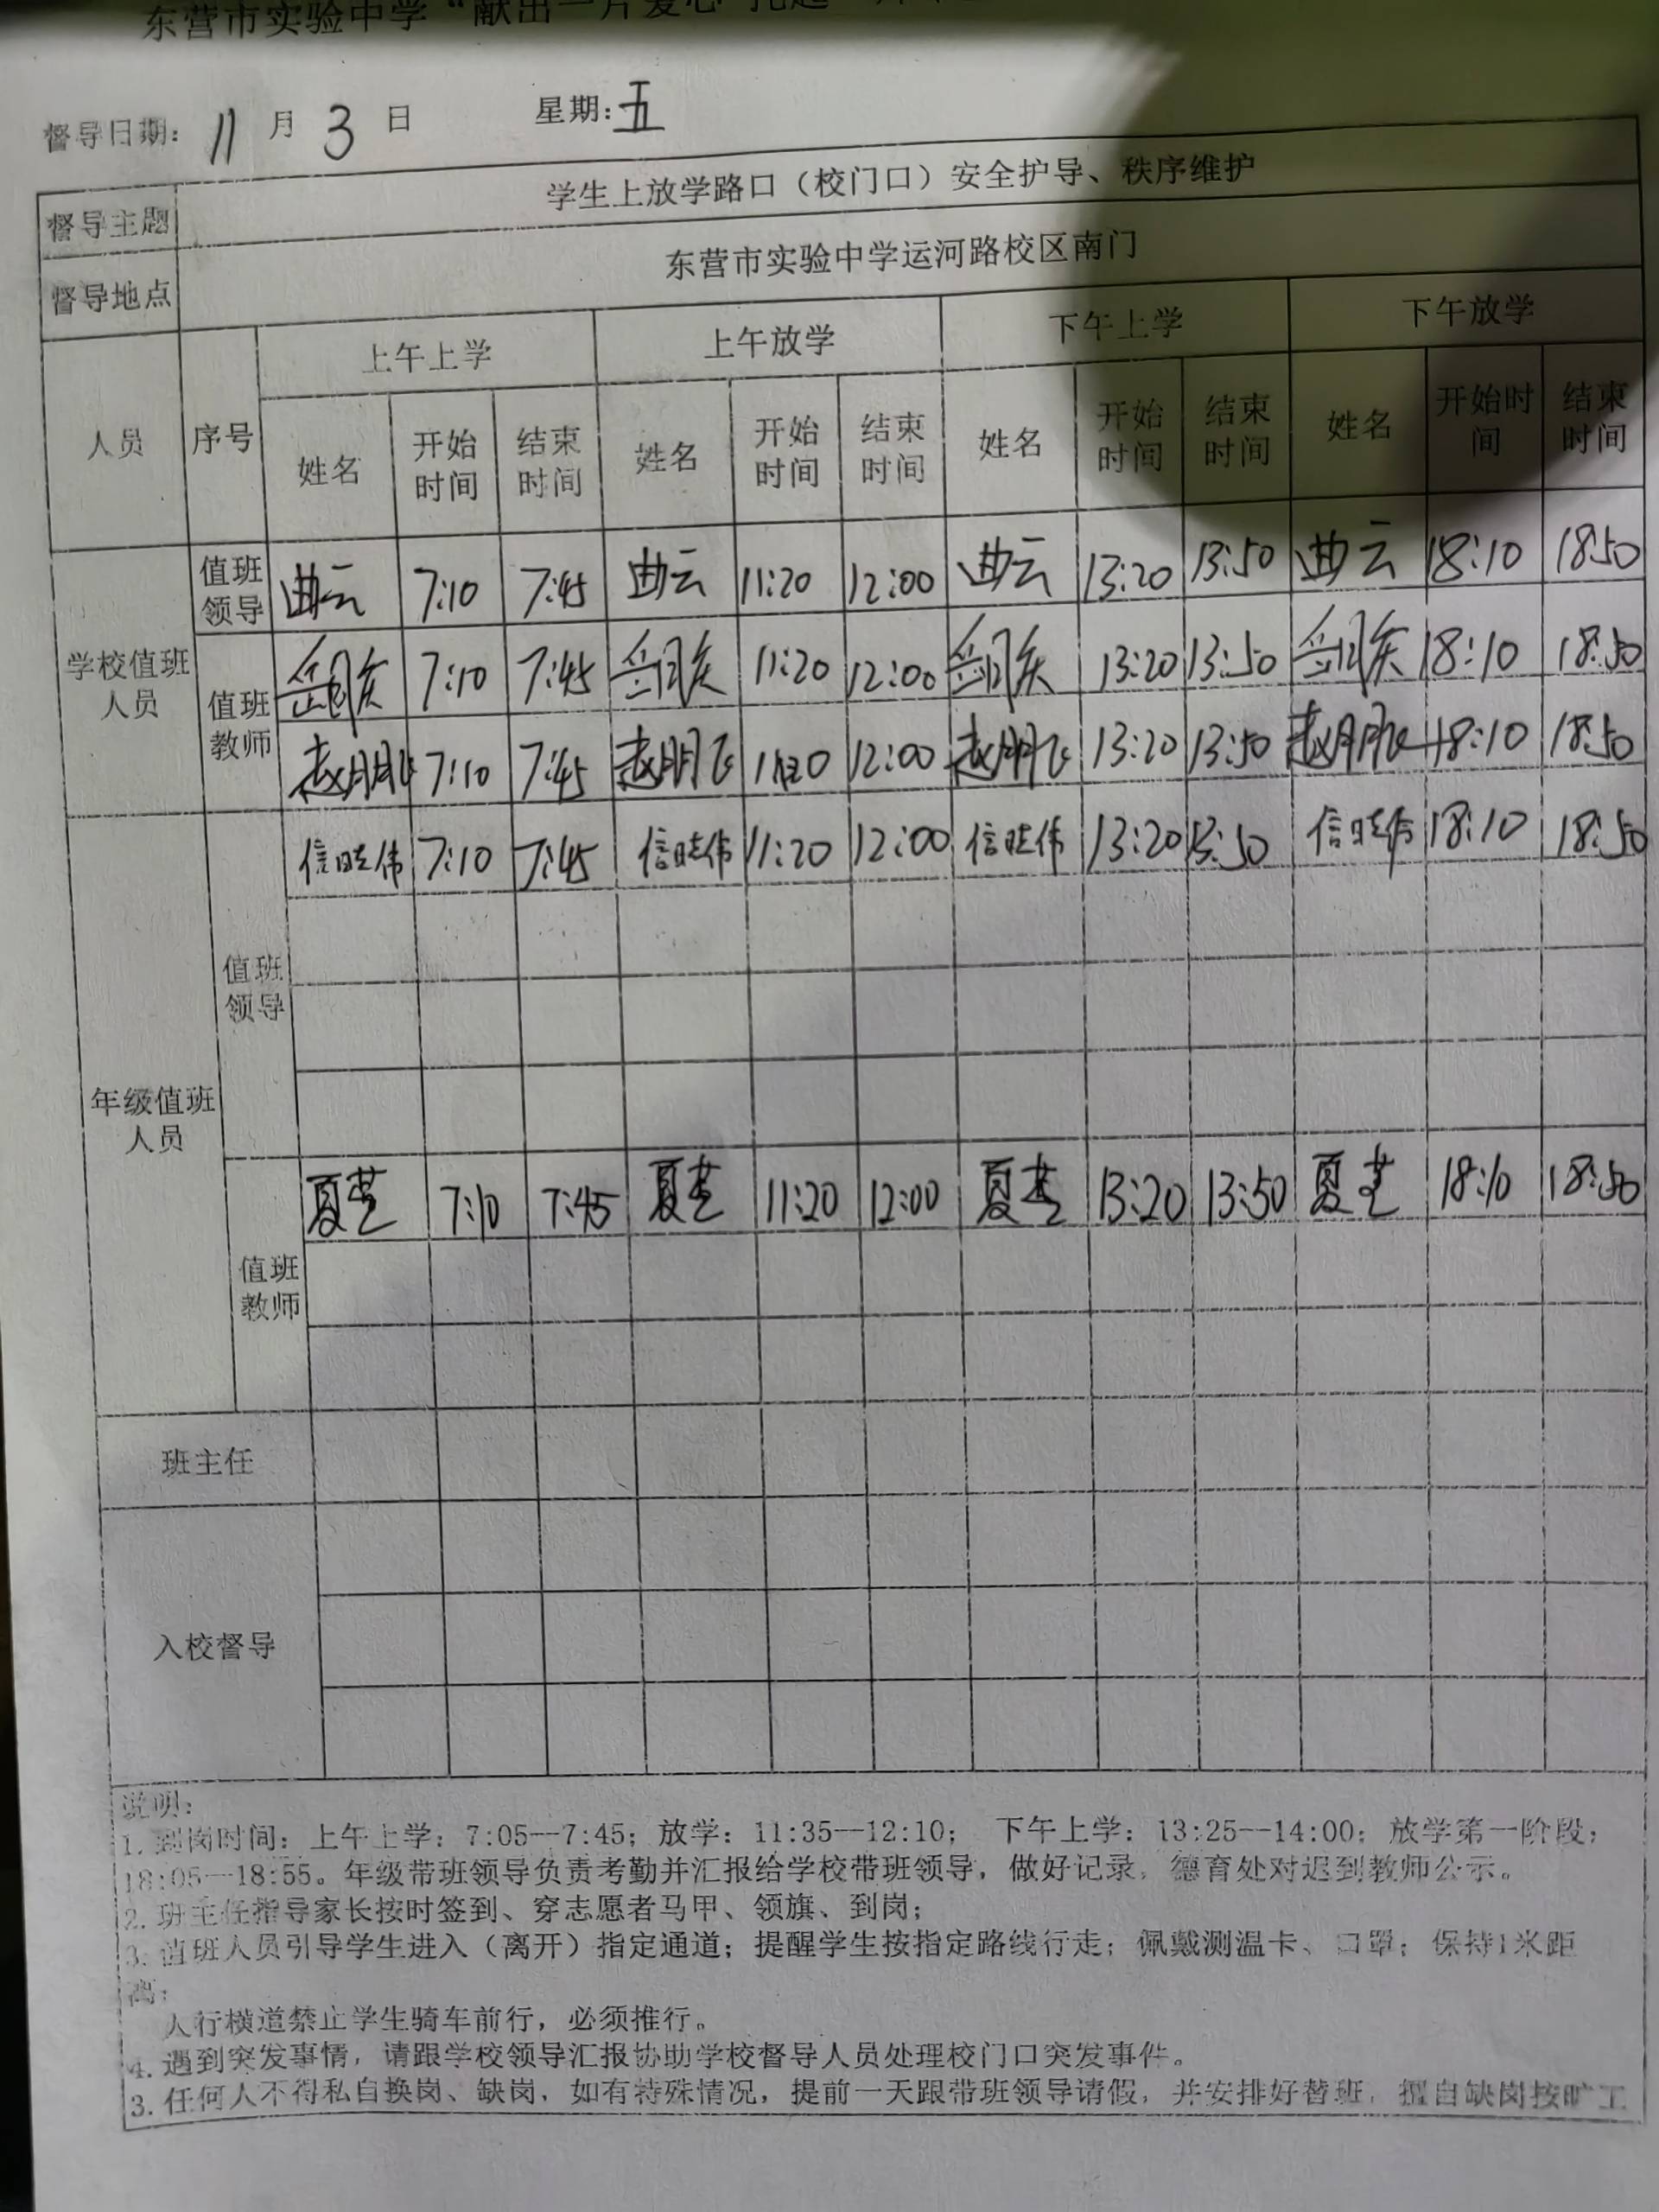 东营市实验中学“献出一片爱心
督导日期: 11 月 3 日 星期: 五
督导主题 学生上放学路口（校门口）安全护导、秩序维护
督导地点 东营市实验中学运河路校区南门
人员 序号 上午上学 上午放学 下午上学 下午放学
姓名 开始时间 结束时间 姓名 开始时间 结束时间 姓名 开始时间 结束时间 姓名 开始时间 结束时间
学校值班人员 值班领导 曲云 7:10 7:45 曲云 11:20 12:00 曲云 13:20 13:50 曲云 18:10 18:50
值班教师 7:10 7:45 11:20 12:00 13:20 13:50 18:10 18:50
赵朋飞 7:10 7:45 赵朋飞 12:00 赵朋飞 13:20 13:50 赵朋飞 18:10 18:50
年级值班人员 值班领导 信晓伟 7:10 7:45 信晓伟 11:20 12:00 信晓伟 13:20 13:50 信晓伟 18:10 18:50
值班教师 夏芝 7:10 7:45 夏芝 11:20 12:00 夏芝 13:20 13:50 夏芝 18:10 18:50
班主任
入校督导
说明:
1. 到岗时间: 上午上学: 7:05--7:45; 放学: 11:35--12:10; 下午上学: 13:25--14:00; 放学第一阶段;
18:05--18:55。年级带班领导负责考勤并汇报给学校带班领导，做好记录，德育处对迟到教师公示。
2. 班主任指导家长按时签到、穿志愿者马甲、领旗、到岗;
3. 值班人员引导学生进入（离开）指定通道; 提醒学生按指定路线行走; 佩戴测温卡、口罩; 保持1米距
离;
人行横道禁止学生骑车前行，必须推行。
4. 遇到突发事情，请跟学校领导汇报协助学校督导人员处理校门口突发事件。
3. 任何人不得私自换岗、缺岗，如有特殊情况，提前一天跟带班领导请假，并安排好替班，擅自缺岗按旷工